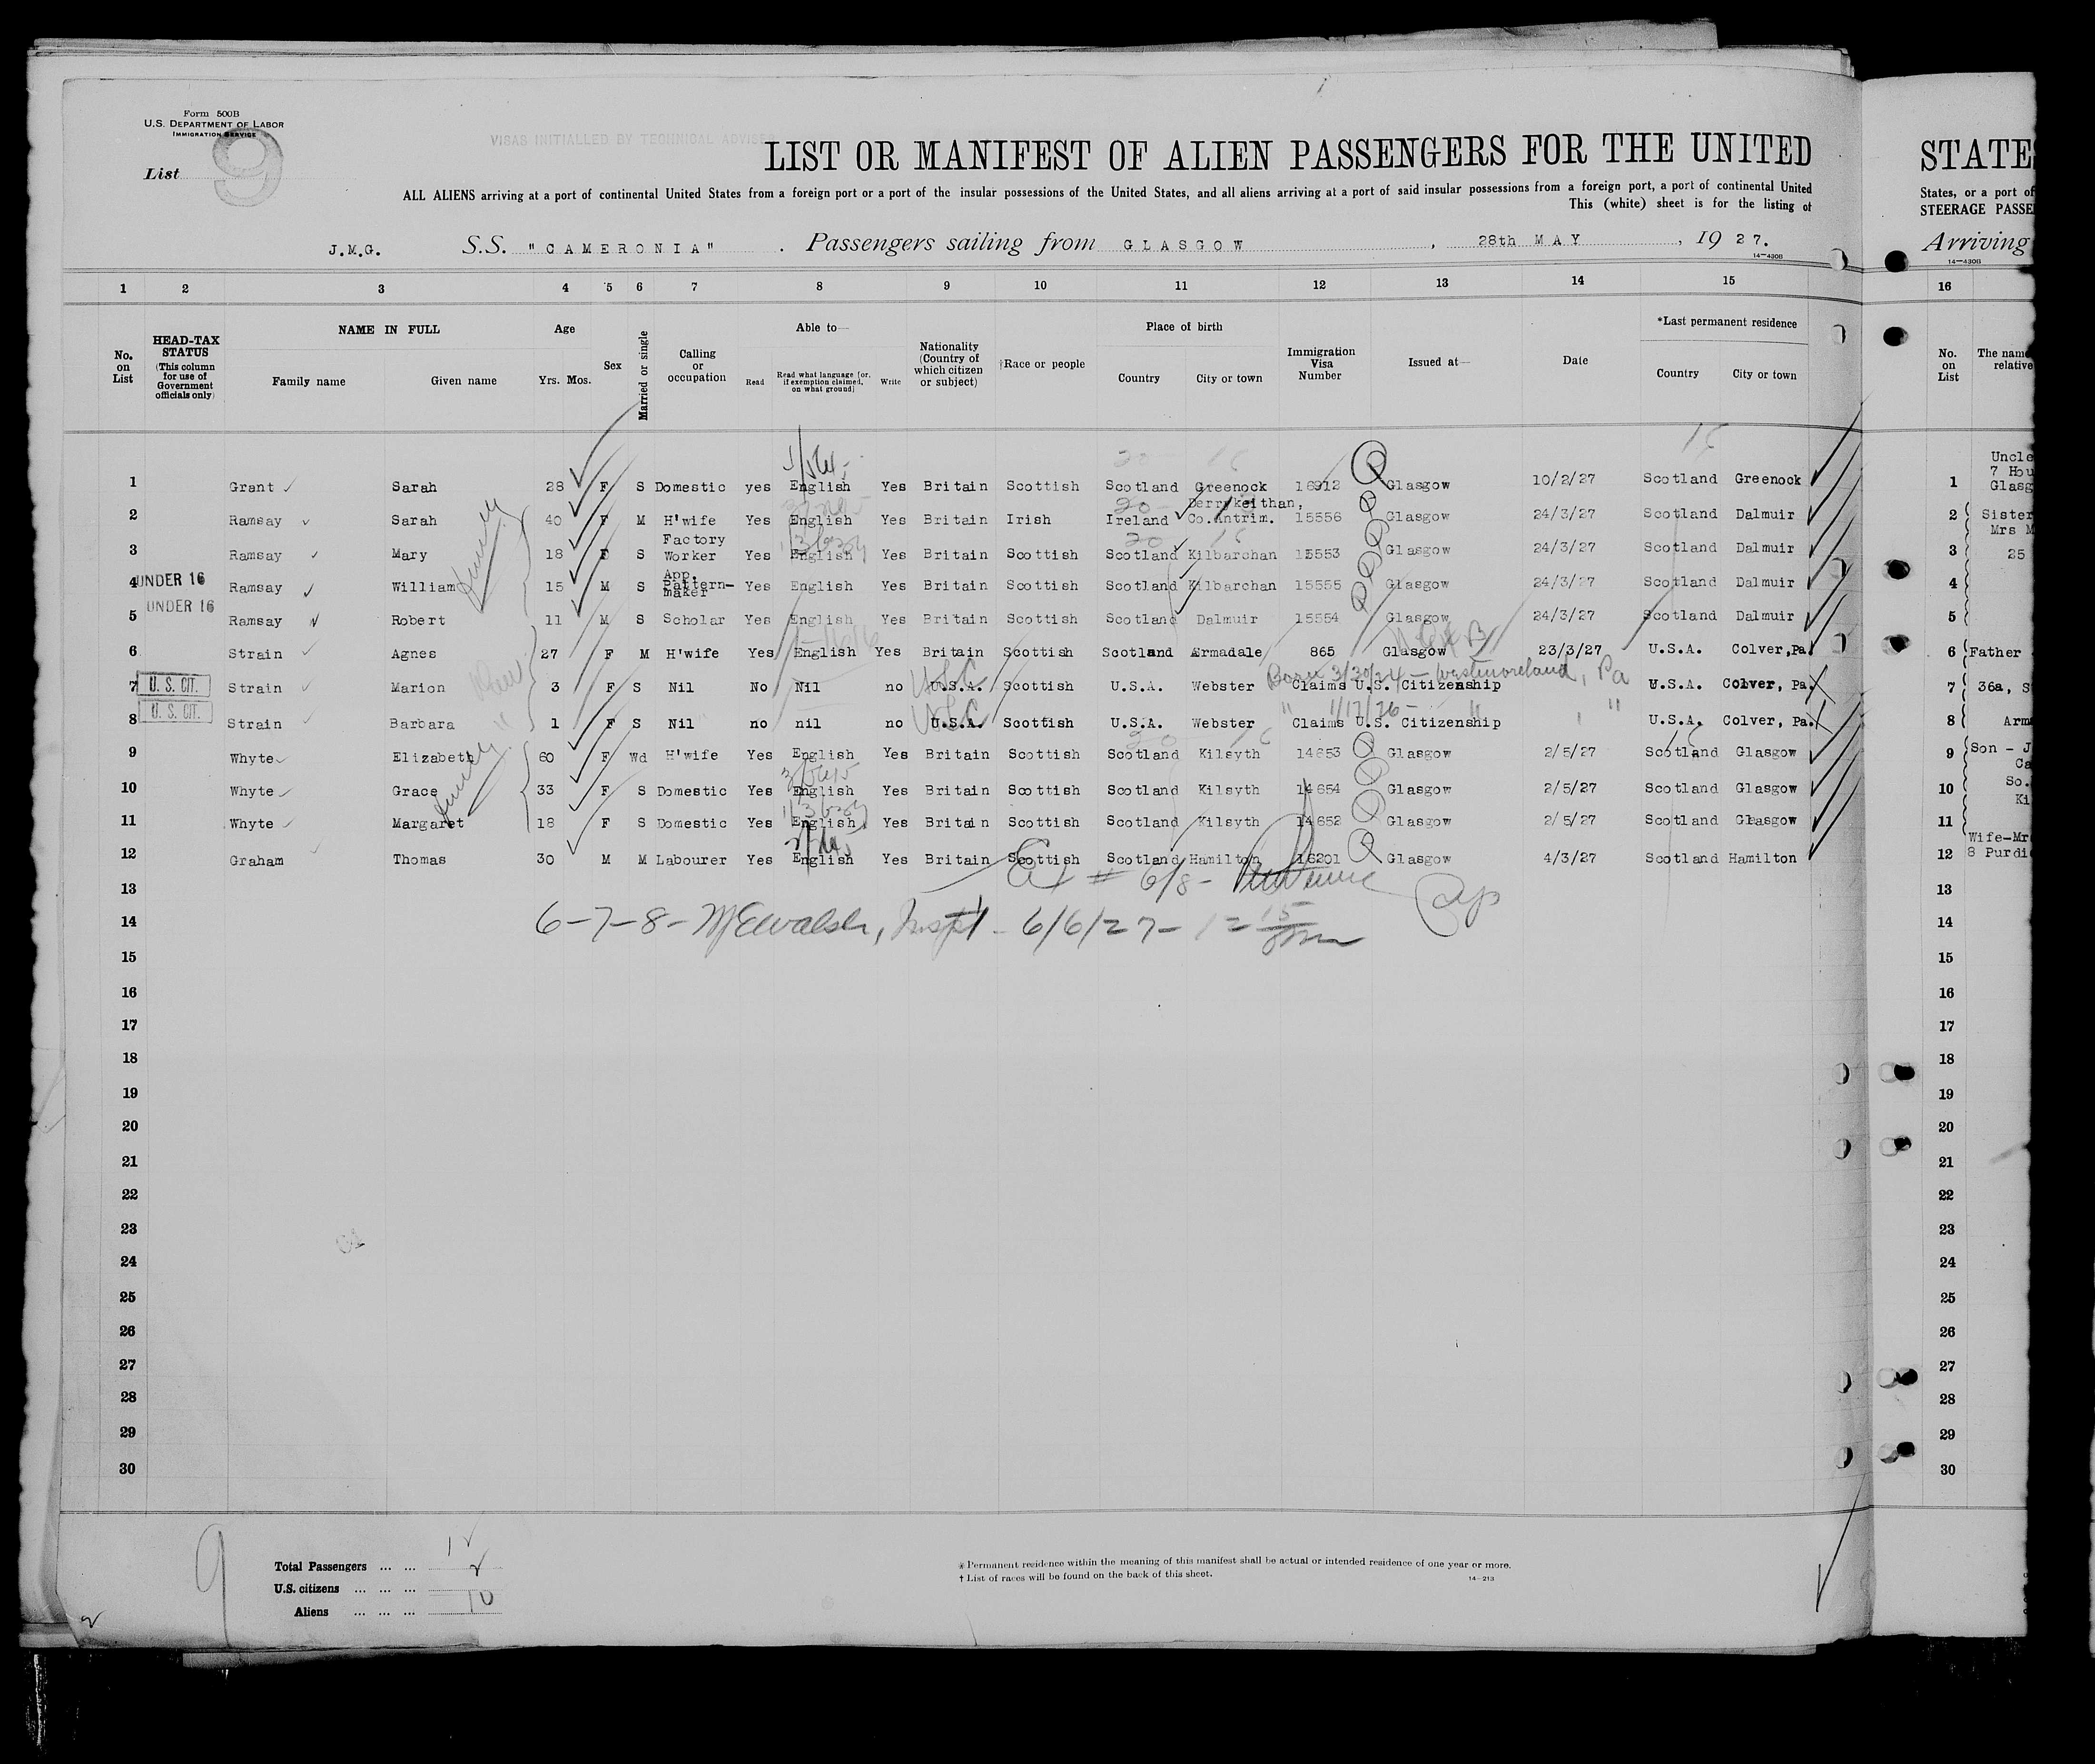 Form 500B
U.S. DEPARTMENT OF LABOR
IMMIGRATION SERVICE
List 9
VISAS INITIALLED BY TECHNICAL ADVISER
LIST OR MANIFEST OF ALIEN PASSENGERS FOR THE UNITED
STATE
ALL ALIENS arriving at a port of continental United States from a foreign port or a port of the insular possessions of the United States, and all aliens arriving at a port of said insular possessions from a foreign port, a port of continental United
States, or a port of
This (white) sheet is for the listing of
STEERAGE PASSE
J.M.G. S.S. "CAMERONIA". Passengers sailing from GLASGOW, 28th MAY, 1927.
Arriving
14—430B
14—430B
1 2 3 4 5 6 7 8 9 10 11 12 13 14 15 16
No. on List
HEAD-TAX STATUS (This column for use of Government officials only)
NAME IN FULL Family name Given name
Age Yrs. Mos.
Sex
Married or single
Calling or occupation
Able to— Read Read what language (or, if exemption claimed, on what ground) Write
Nationality (Country of which citizen or subject)
†Race or people
Place of birth Country City or town
Immigration Visa Number
Issued at—
Date
*Last permanent residence Country City or town
No. on List
The name relative
1 Grant Sarah 28 F S Domestic yes English Yes Britain Scottish Scotland Greenock 16912 Glasgow 10/2/27 Scotland Greenock 1 Uncle 7 Hou Glasg
2 Ramsay Sarah 40 F M H'wife Yes English Yes Britain Irish Ireland Derrykeithan, Co.Antrim. 15556 Glasgow 24/3/27 Scotland Dalmuir 2 Sister Mrs M
3 Ramsay Mary 18 F S Factory Worker Yes English Yes Britain Scottish Scotland Kilbarchan 15553 Glasgow 24/3/27 Scotland Dalmuir 3 25
4 UNDER 16 Ramsay William 15 M S App. Pattern-maker Yes English Yes Britain Scottish Scotland Kilbarchan 15555 Glasgow 24/3/27 Scotland Dalmuir 4
5 UNDER 16 Ramsay Robert 11 M S Scholar Yes English Yes Britain Scottish Scotland Dalmuir 15554 Glasgow 24/3/27 Scotland Dalmuir 5
6 Strain Agnes 27 F M H'wife Yes English Yes Britain Scottish Scotland Armadale 865 Glasgow 23/3/27 U.S.A. Colver,Pa. 6 Father
Born 3/30/24 — Westmoreland, Pa
7 U. S. CIT. Strain Marion 3 F S Nil No Nil no U.S.A. Scottish U.S.A. Webster Claims U.S. Citizenship U.S.A. Colver, Pa. 7 36a, S
" 1/17/26 — " "
8 U. S. CIT. Strain Barbara 1 F S Nil no nil no U.S.A. Scottish U.S.A. Webster Claims U.S. Citizenship U.S.A. Colver, Pa. 8 Arm
9 Whyte Elizabeth 60 F Wd H'wife Yes English Yes Britain Scottish Scotland Kilsyth 14653 Glasgow 2/5/27 Scotland Glasgow 9 Son - J Ca
10 Whyte Grace 33 F S Domestic Yes English Yes Britain Scottish Scotland Kilsyth 14654 Glasgow 2/5/27 Scotland Glasgow 10 So. Ki
11 Whyte Margaret 18 F S Domestic Yes English Yes Britain Scottish Scotland Kilsyth 14652 Glasgow 2/5/27 Scotland Glasgow 11
12 Graham Thomas 30 M M Labourer Yes English Yes Britain Scottish Scotland Hamilton 16201 Glasgow 4/3/27 Scotland Hamilton 12 Wife-Mr 8 Purdi
13 13
14 6-7-8- Inspt. 6/6/27- 14
15 15
16 16
17 17
18 18
19 19
20 20
21 21
22 22
23 23
24 24
25 25
26 26
27 27
28 28
29 29
30 30
9
Total Passengers ... ... 12
U.S. citizens ... ... ... 2
Aliens ... ... ... 10
* Permanent residence within the meaning of this manifest shall be actual or intended residence of one year or more.
† List of races will be found on the back of this sheet.
14—213